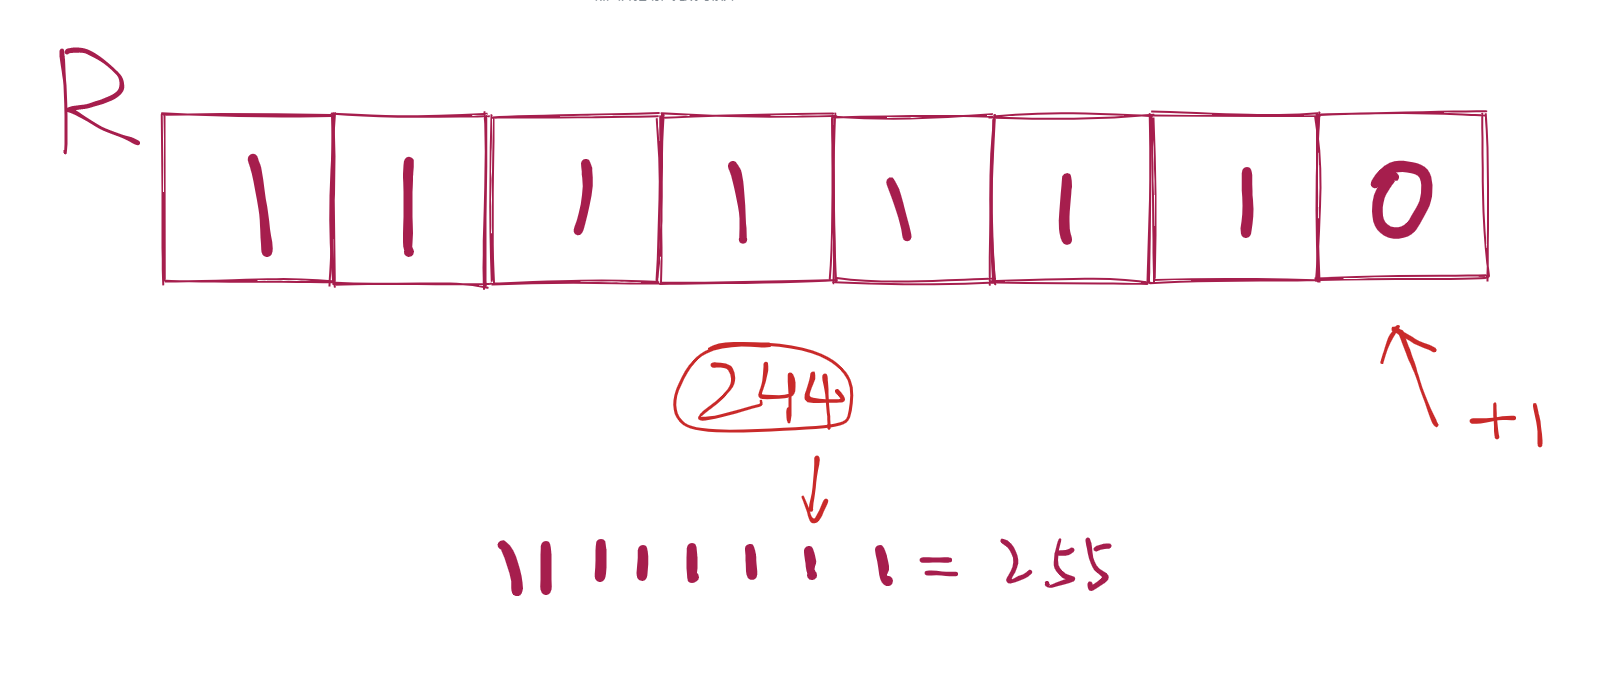 R
1 1 1 1 1 1 1 0
244
+1
11111111 = 255